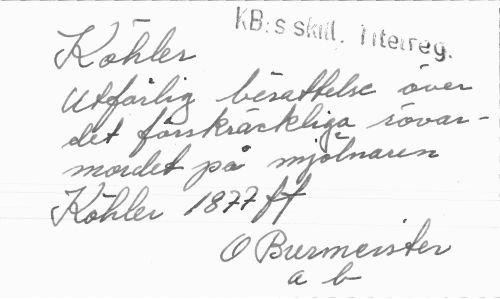 KB:s skill. Titelreg.
Köhler
Utförlig berättelse över
det förskräckliga rövar-
mordet på mjölnaren
Köhler 1877 ff
O Burmeister
a b